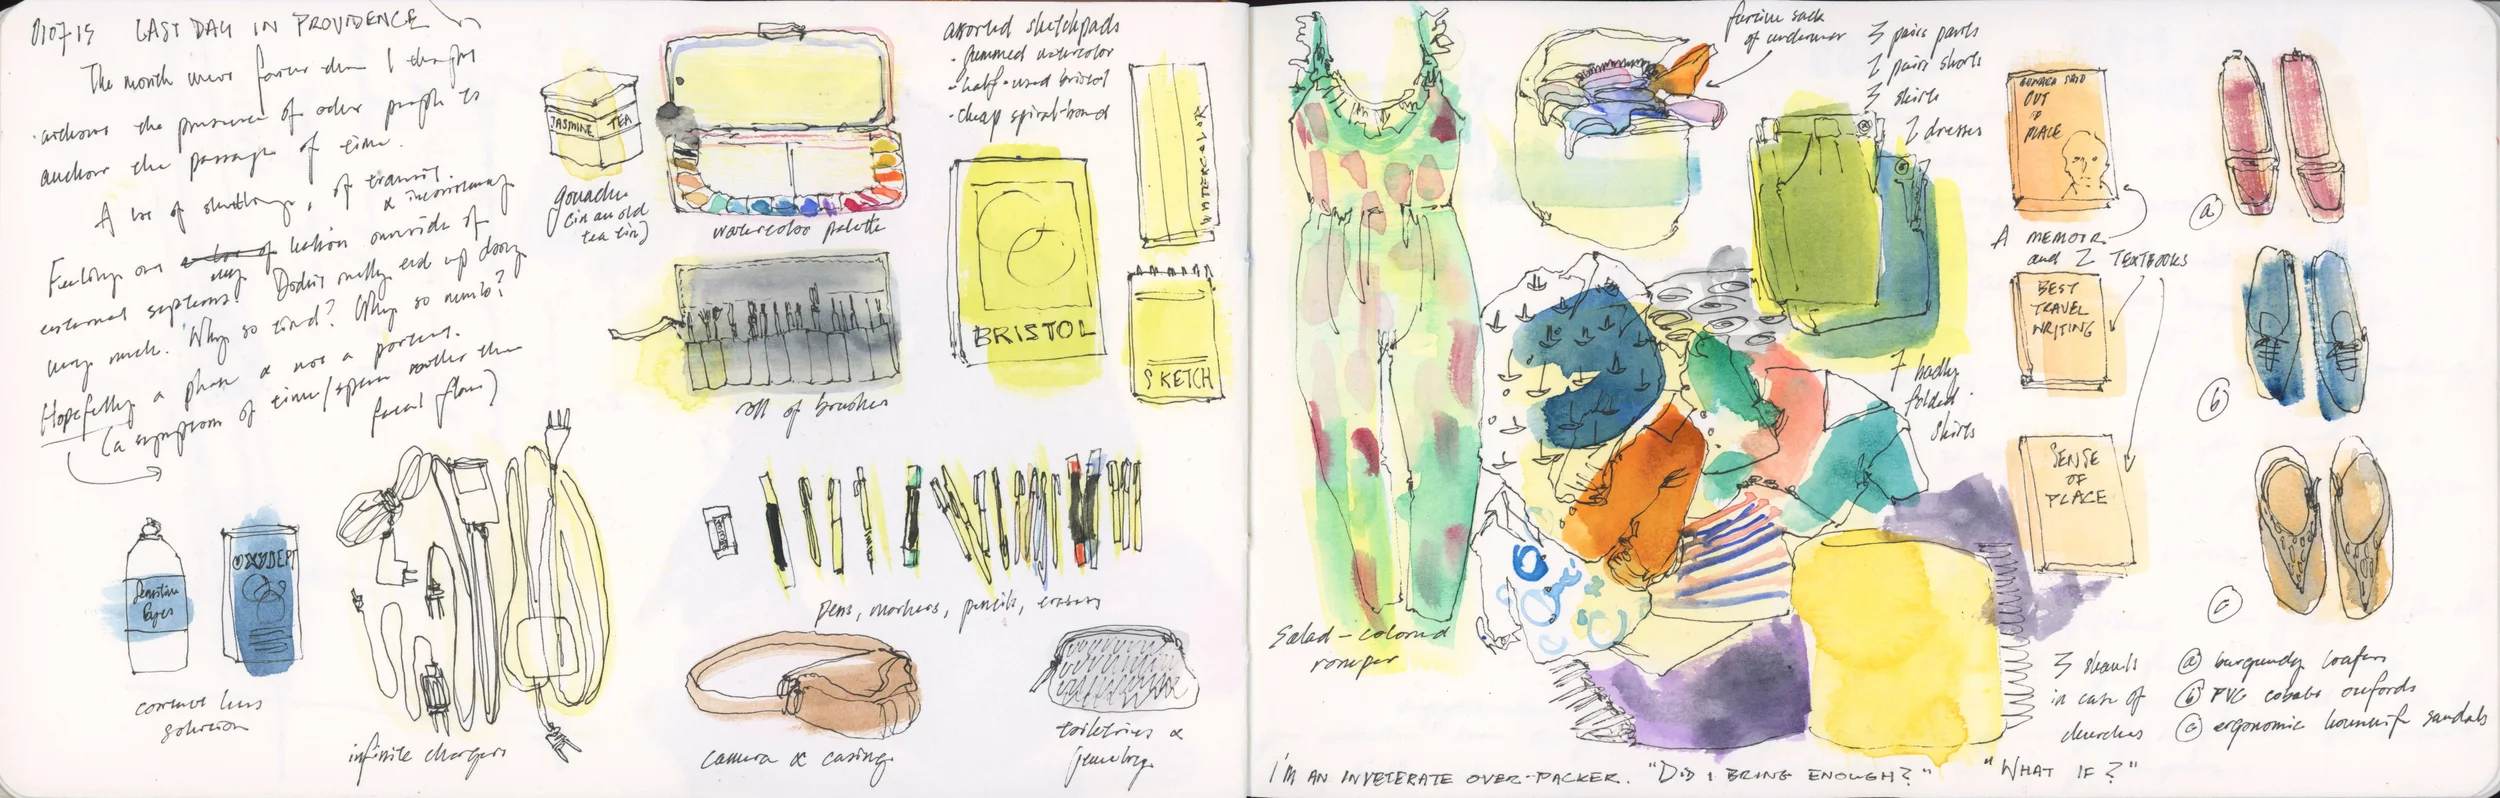 010715 LAST DAY IN PROVIDENCE
The month went faster than I thought
without the presence of other people to
anchor the passage of time.
A lot of shuttling, of transit.
& inconstancy
Feeling out of kilter outside of
external systems. Bodies really end up doing
very much. Why so tired? Why so numb?
Hopefully a phase & not a portent.
(a symptom of time/space rather than
facial flaw)
JASMINE TEA
gouache
(in an old
tea tin)
watercolor palette
roll of brushes
assorted sketchpads
- gummed watercolor
- half-used bristol
- cheap spiral-bound
WATERCOLOR
BRISTOL
SKETCH
Sensitive
Eyes
OXYSEPT
contact lens
solution
infinite chargers
pens, markers, pencils, erasers
camera & casing
toiletries &
jewelry
Salad-colored
romper
sack
of underwear
3 pairs pants
2 pairs shorts
3 skirts
2 dresses
7 badly
folded
shirts
EDWARD SAID
OUT
OF
PLACE
A MEMOIR
and 2 TEXTBOOKS
BEST
TRAVEL
WRITING
SENSE
OF
PLACE
3 shawls
in case of
churches
a
b
c
(a) burgundy loafers
(b) PVC cobalt oxfords
(c) ergonomic sandals
I'M AN INVETERATE OVER-PACKER. "DID I BRING ENOUGH?" "WHAT IF?"